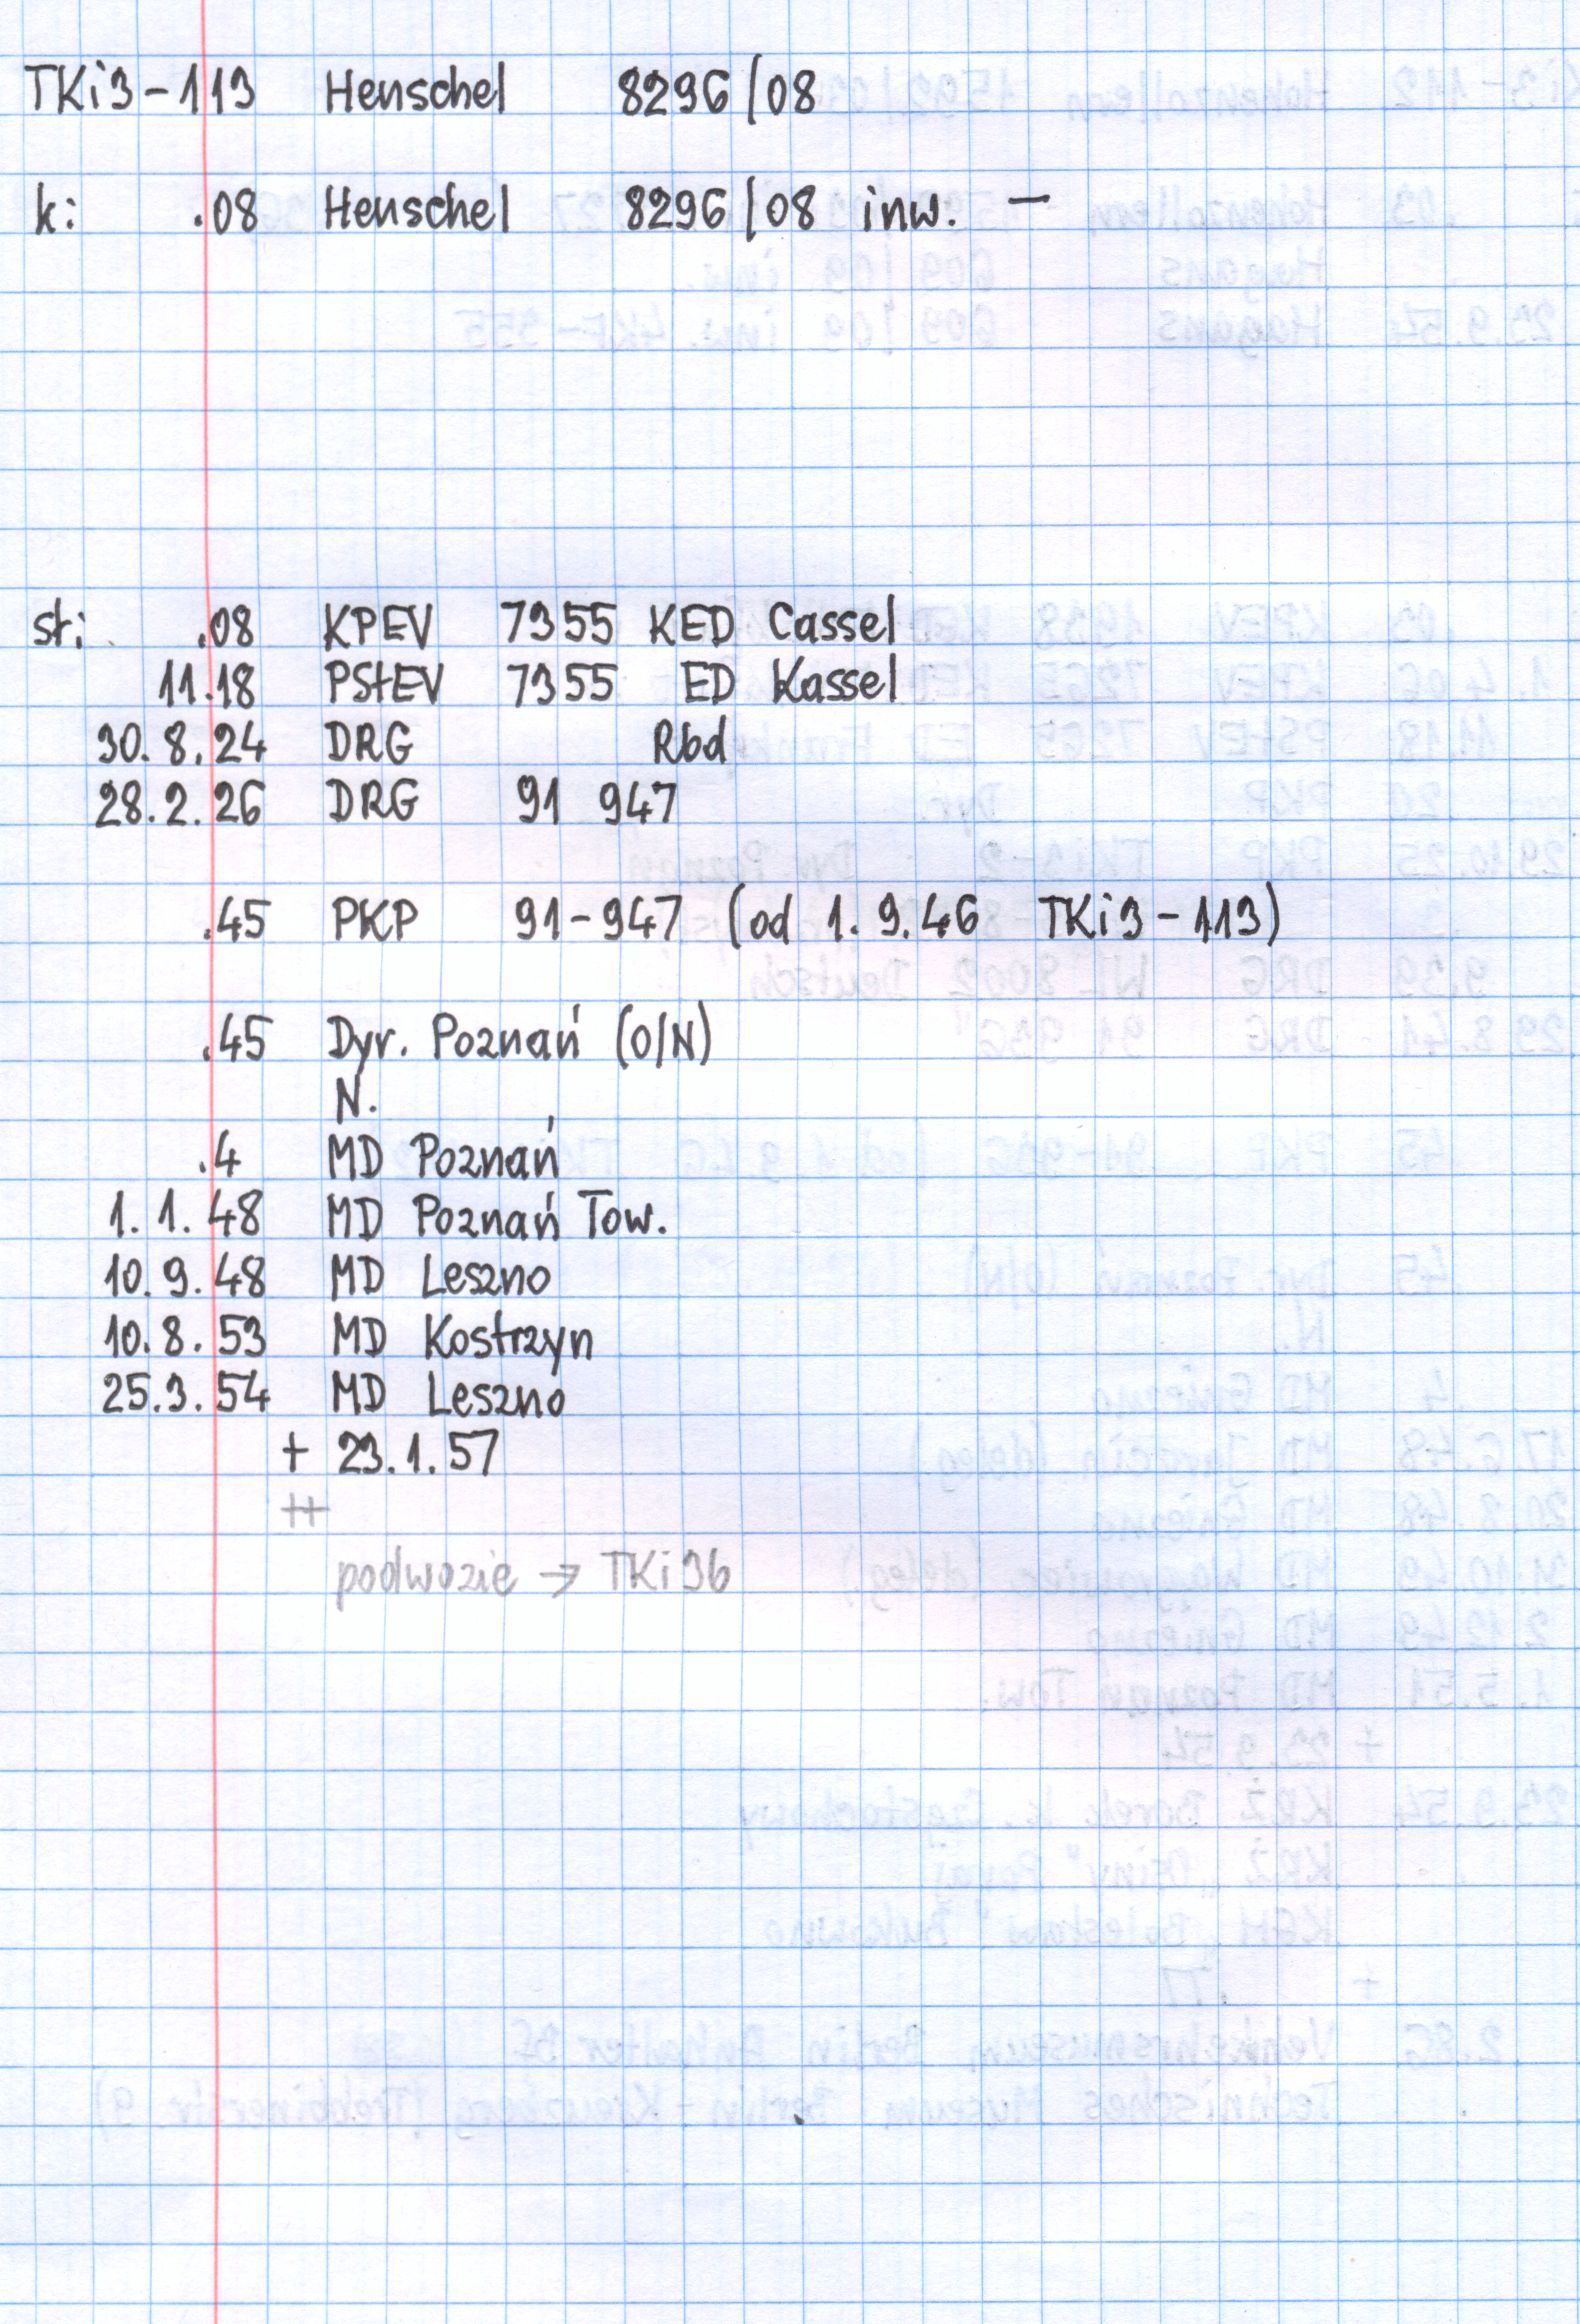 TKi3-113 Henschel 8296/08
k: .08 Henschel 8296/08 inw. —
st: .08 KPEV 7355 KED Cassel
11.18 PStEV 7355 ED Kassel
30.8.24 DRG Rbd
28.2.26 DRG 91 947
.45 PKP 91-947 (od 1.9.46 TKi3-113)
.45 Dyr. Poznań (O/N)
N.
.4 MD Poznań
1.1.48 MD Poznań Tow.
10.9.48 MD Leszno
10.8.53 MD Kostrzyn
25.3.54 MD Leszno
+ 23.1.57
++
podwozie → TKi3b